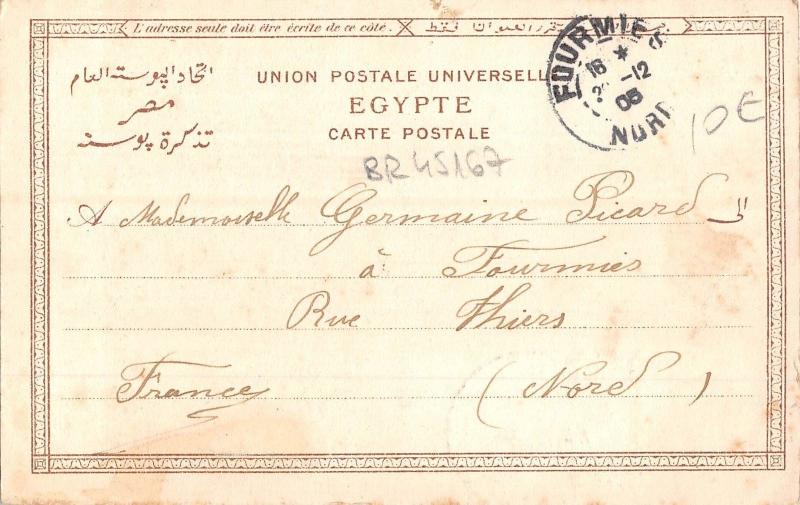 L'adresse seule doit être écrite de ce côté.
FOURMIES
16 *
-12
05
NORD
اتحاد البوسته العام
مصر
تذكرة بوسته
UNION POSTALE UNIVERSELLE
EGYPTE
CARTE POSTALE
10€
BR45167
A Mademoiselle Germaine Picard الى
à Fourmies
Rue Thiers
France (Nord)